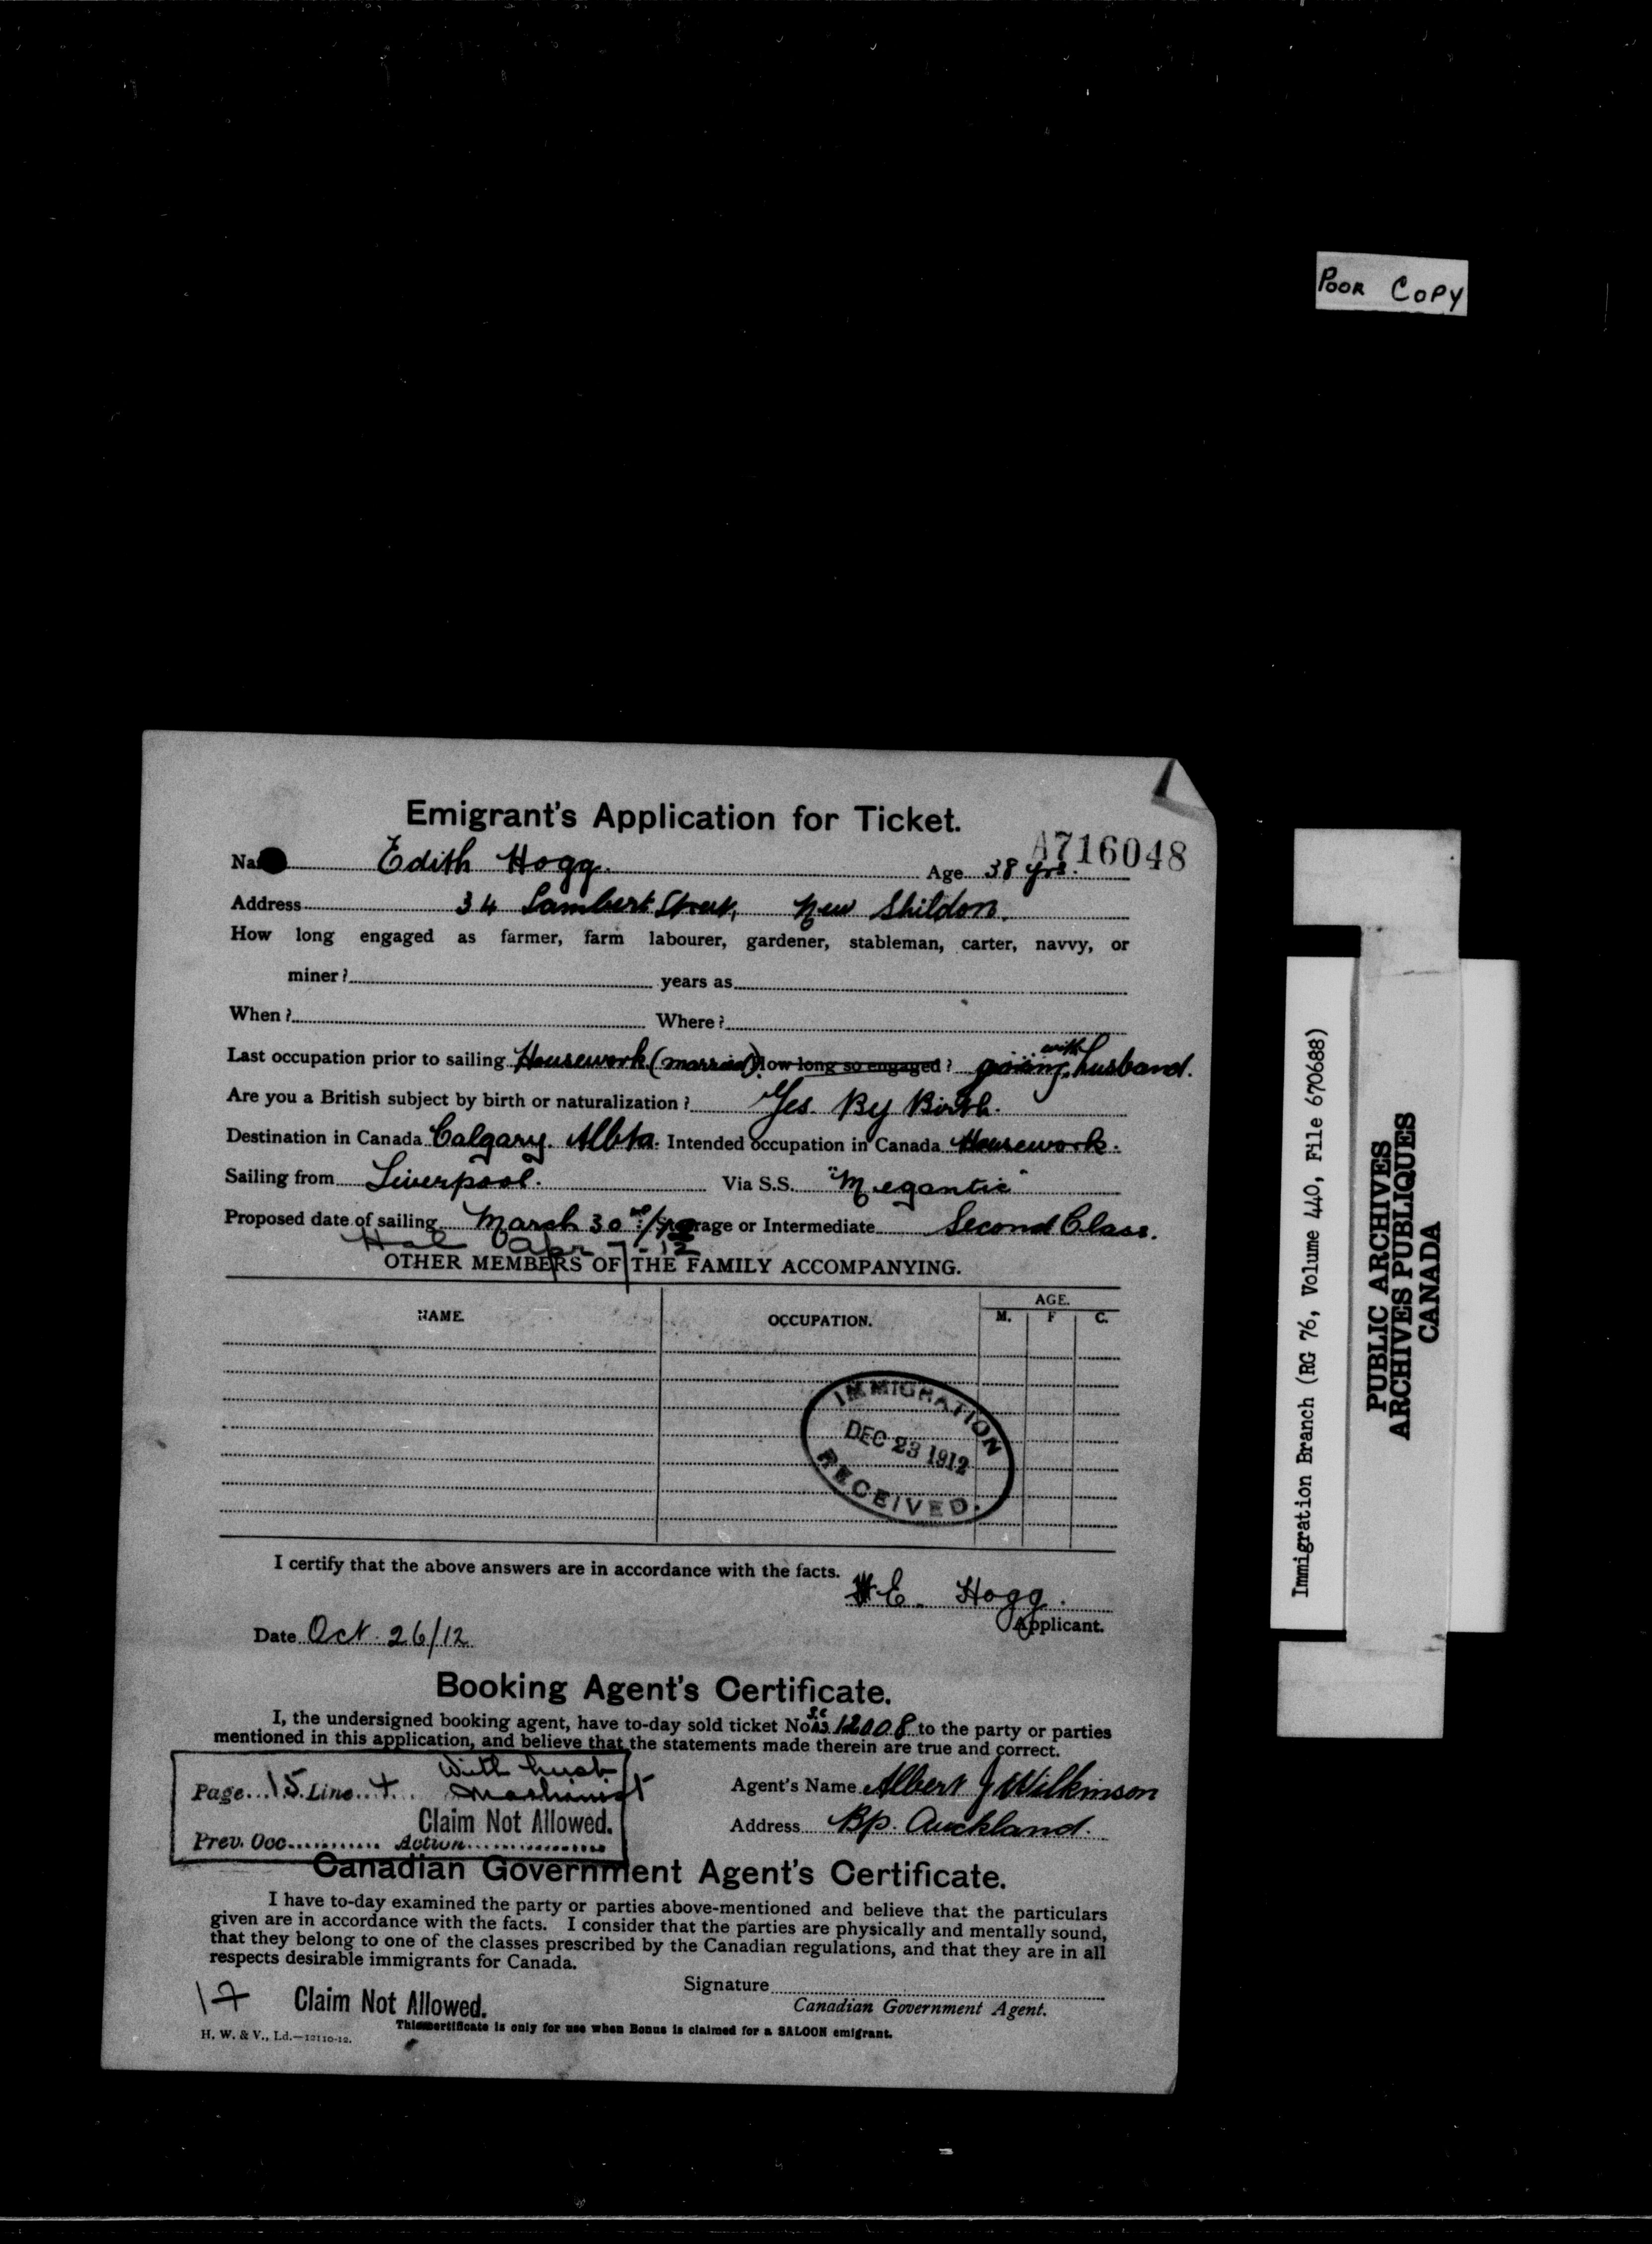 POOR COPY
Emigrant's Application for Ticket.
A716048
Na Edith Hogg. Age 38 yrs.
Address 34 Lambert Street, New Shildon.
How long engaged as farmer, farm labourer, gardener, stableman, carter, navvy, or
miner? years as
When? Where?
Last occupation prior to sailing Housework (married) How long so engaged? going with husband.
Are you a British subject by birth or naturalization? Yes By Birth.
Destination in Canada Calgary. Albta. Intended occupation in Canada Housework.
Sailing from Liverpool. Via S.S. "Megantic"
Proposed date of sailing March 30th/12 Steerage or Intermediate Second Class.
Hal Apr 7-12
OTHER MEMBERS OF THE FAMILY ACCOMPANYING.
NAME. OCCUPATION. AGE.
M. F C.
IMMIGRATION
DEC 23 1912
RECEIVED.
I certify that the above answers are in accordance with the facts.
E. Hogg.
Applicant.
Date Oct. 26/12
Booking Agent's Certificate.
I, the undersigned booking agent, have to-day sold ticket No. 12008 to the party or parties
mentioned in this application, and believe that the statements made therein are true and correct.
With husb
Page 15 Line 4 Machinist
Claim Not Allowed.
Prev. Occ. Action
Agent's Name Albert J Wilkinson
Address Bp. Auckland.
Canadian Government Agent's Certificate.
I have to-day examined the party or parties above-mentioned and believe that the particulars
given are in accordance with the facts. I consider that the parties are physically and mentally sound,
that they belong to one of the classes prescribed by the Canadian regulations, and that they are in all
respects desirable immigrants for Canada.
Signature
Canadian Government Agent.
17 Claim Not Allowed.
This certificate is only for use when Bonus is claimed for a SALOON emigrant.
H. W. & V., Ld.—12110-12.
Immigration Branch (RG 76, Volume 440, File 670688)
PUBLIC ARCHIVES
ARCHIVES PUBLIQUES
CANADA